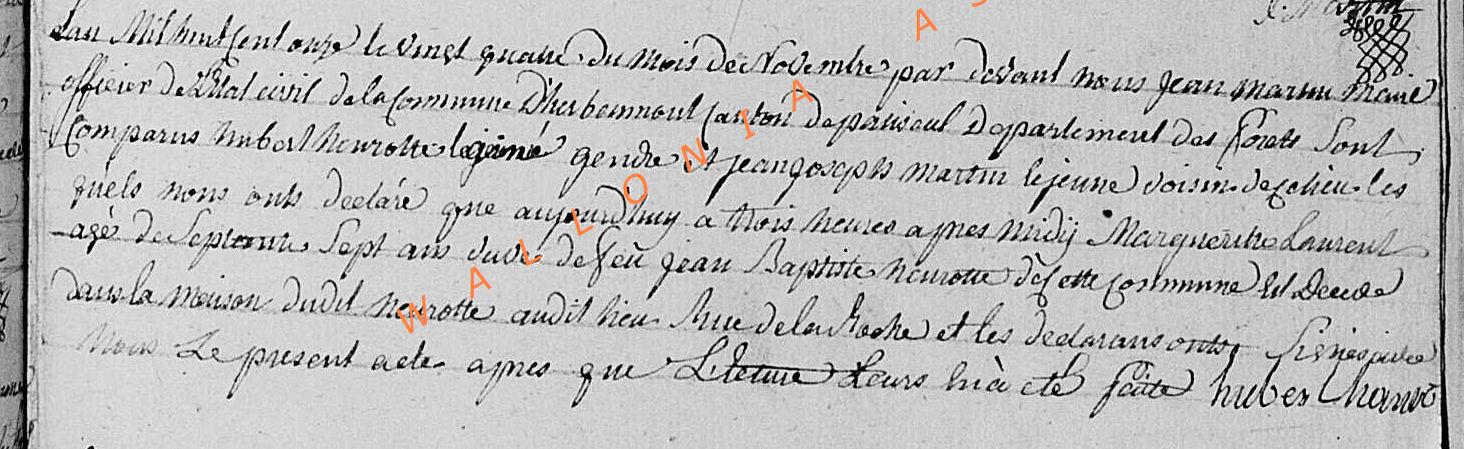 Lan Mil huit Cent onze le vingt quatre du mois de Novembre par devant nous Jean Martin Maire
officier de l'Etat civil de la Commune D'herbeumont Canton de paliseul Departement des forets Sont
Comparus hubert heurotte gendre et jean joseph martin le jeune voisin de ce lieu les
quels nous onts declaré que aujourd'huy a trois heures apres midÿ Marguerithe Laurent
agé de Septante Sept ans veuve de feû jean Baptiste heurotte de Cette Commune Est Decedé
dans la meison dudit heurotte audit lieu Rue de la Roche et les declarans onts Signés avec
Nous Le present acte apres que Lecture Leurs hà eté faitte hubert
WALLONIA